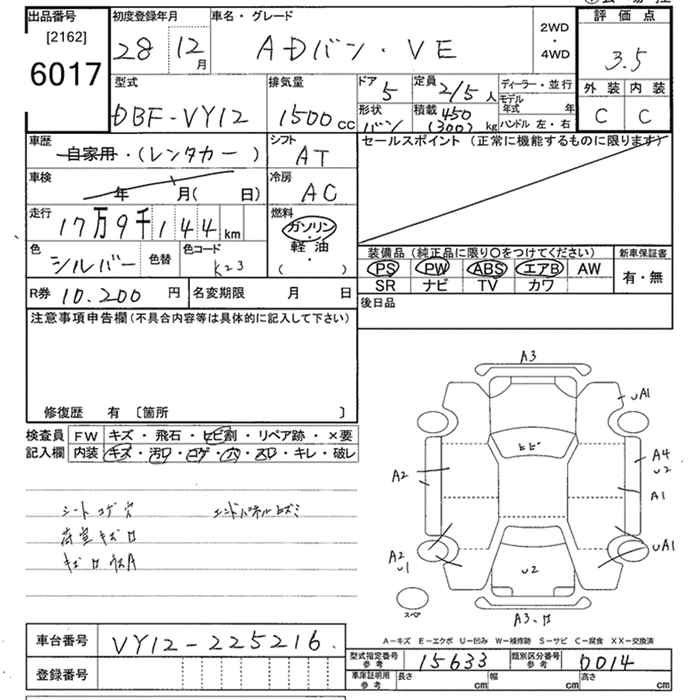 出品番号 初度登録年月 車名・グレード 2WD・4WD 評価点
[2162] 28 12月 ADバン・VE 3.5
6017
型式 排気量 ドア 5 定員 2/5人 ディーラー・並行 外装 内装
DBF-VY12 1500cc 形状 バン 積載 450 (300)kg モデル年式 年 C C
ハンドル 左・右
車歴 自家用・(レンタカー) シフト AT セールスポイント(正常に機能するものに限ります)
車検 年 月( 日) 冷房 AC
走行 17万9千144km 燃料 ガソリン・軽油・( )
色 シルバー 色替 色コード K23 装備品(純正品に限り○をつけてください) 新車保証書
PS PW ABS エアB AW 有・無
SR ナビ TV カワ
R券 10.200円 名変期限 月 日 後日品
注意事項申告欄(不具合内容等は具体的に記入して下さい)
修復歴 有 [箇所 ]
検査員 FW キズ・飛石・ヒビ割・リペア跡・×要
記入欄 内装 キズ・汚れ・コゲ・穴・スレ・キレ・破レ
シート コゲ 穴 エンドパネルヒズミ
荷室キズ
A3
uA1
ヒビ
A2 A4
u2
A1
A2
u1 u2 uA1
スペア
A3・
A-キズ E-エクボ U-凹み W-補修跡 S-サビ C-腐食 XX-交換済
車台番号 VY12-225216
型式指定番号 参考 15633 類別区分番号 参考 0014
登録番号 車庫証明用 参考 長さ cm 幅 cm 高さ cm